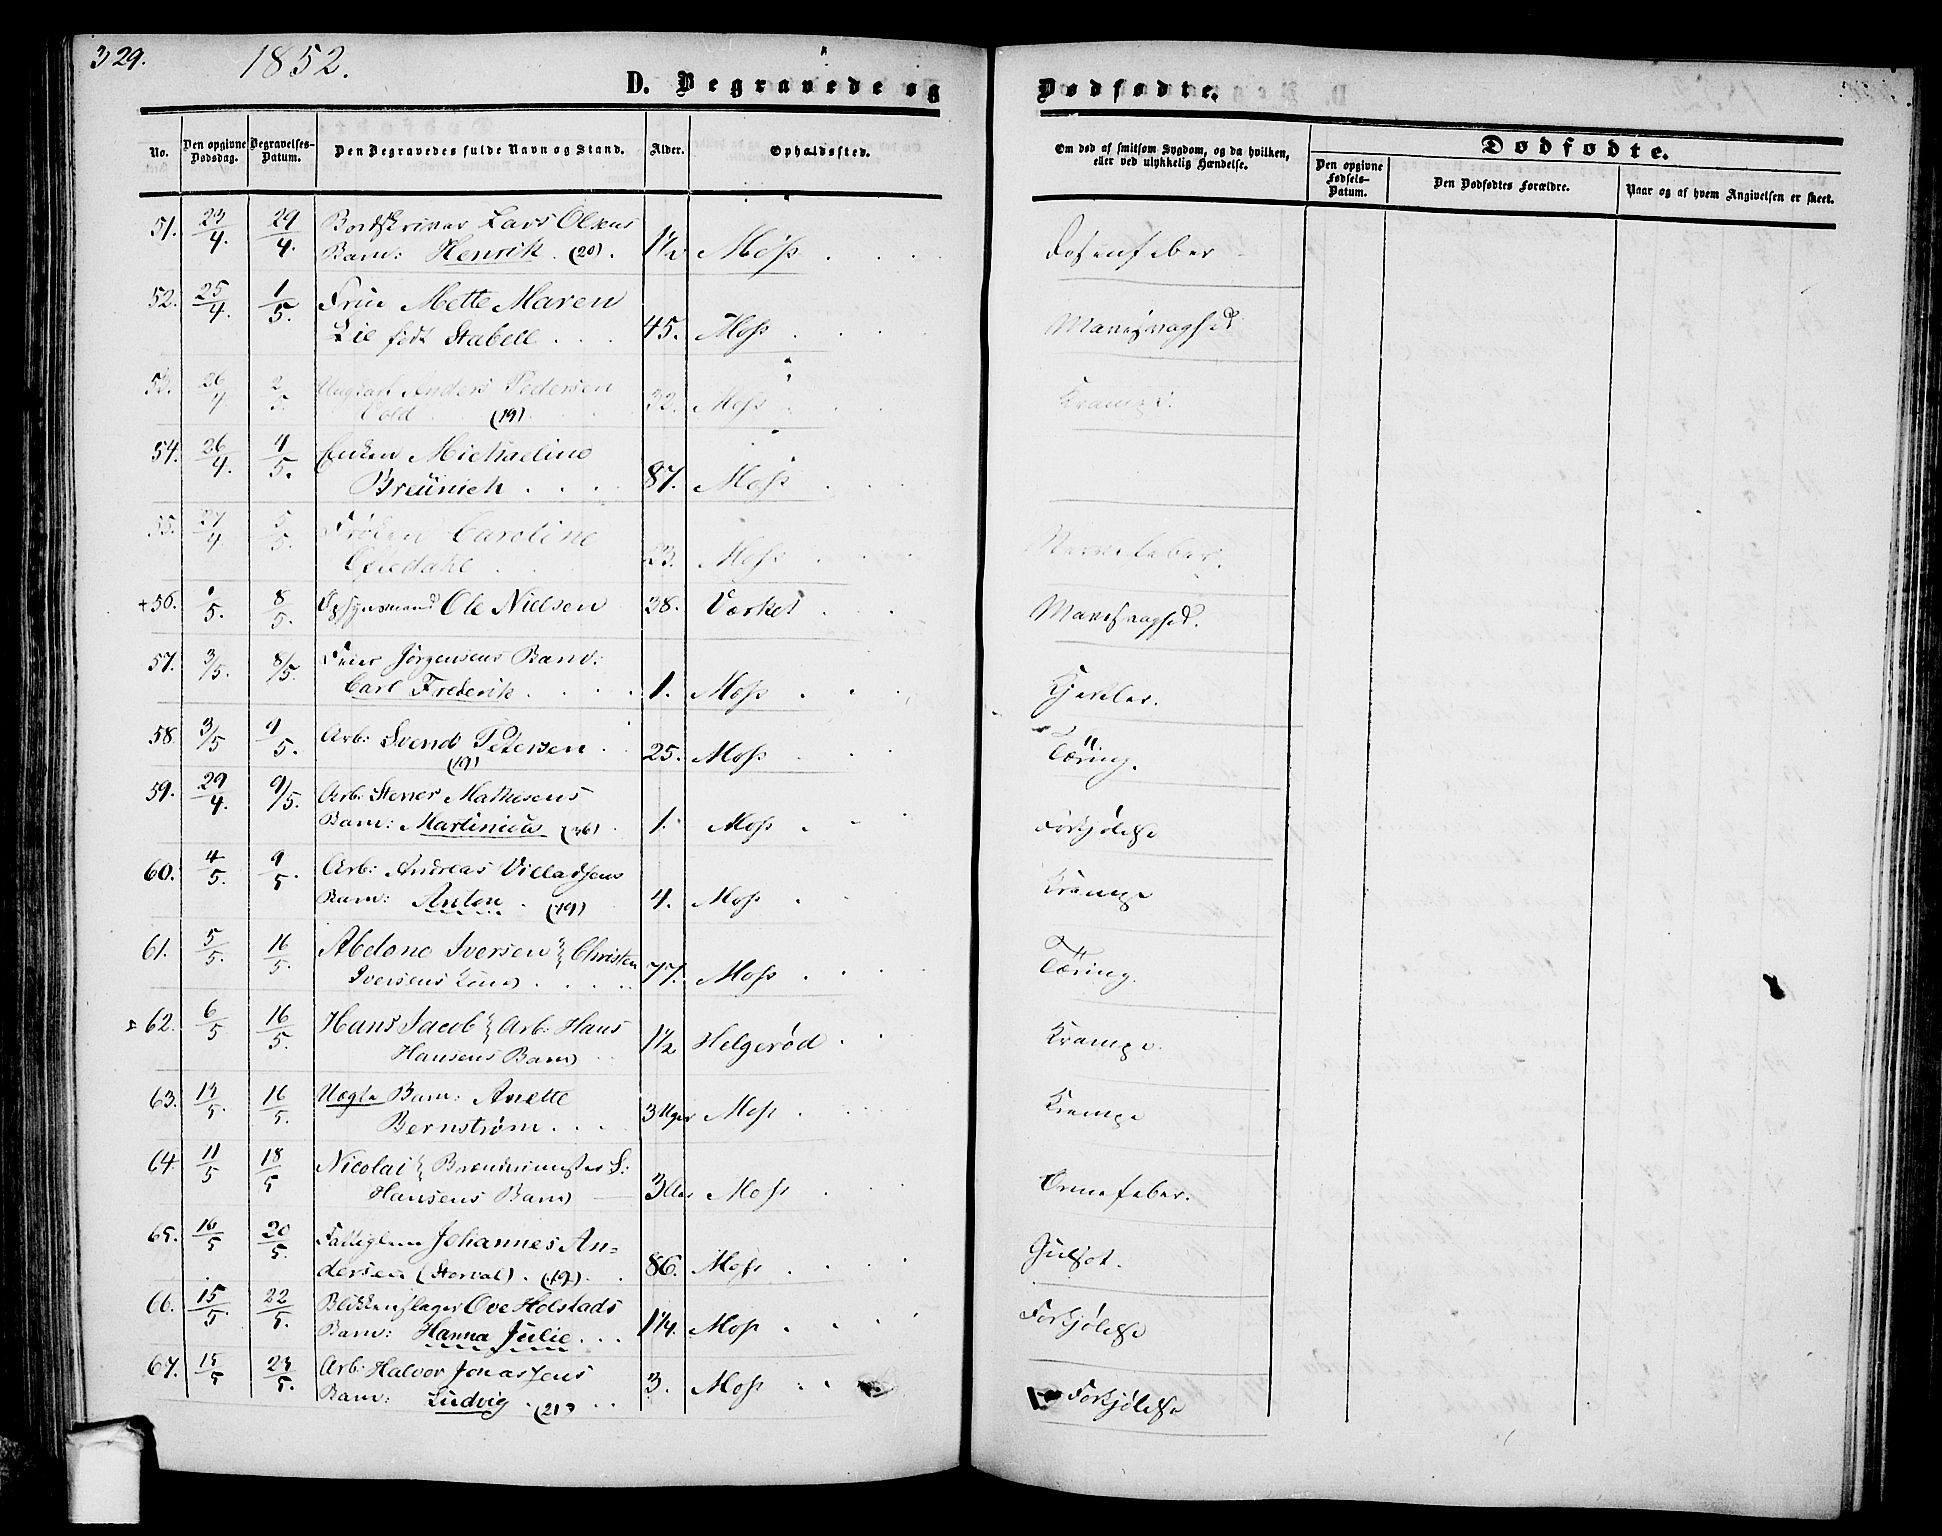 329.
1852.
D. Begravede og
Dødfødte.
No.
Den opgivne Dødsdag.
Begravelses-Datum.
Den Begravedes fulde Navn og Stand.
Alder.
Opholdssted.
Om død af smitsom Sygdom, og da hvilken, eller ved ulykkelig Hændelse.
Dødfødte.
Den opgivne Fødsels-Datum.
Den Dødfødtes Forældre.
Naar og af hvem Angivelsen er skeet.
51. 23/4. 29/4. Lars Olsens
Barn: Henrik. (20). 1½ Moss
52. 25/4. 1/5. Frue Mette Maren
Lie født Stabell 45. Moss Mavesvaghed
53. 26/4. 2/5. Ungkarl Anders Pedersen
Vold (19) 32. Moss Krampe.
54. 26/4. 4/5. Enken Michaeline
Breünich 87. Moss
55. 27/4. 5/5. Frøken Caroline
23. Moss Nervefeber.
+56. 1/5. 8/5. Opsynsmand Ole Nielsen 38. Værket Mavesvaghed.
57. 3/5. 8/5. Feier Jørgensens Barn:
Carl Frederik 1. Moss Kjertler.
58. 3/5 9/5. Arb: Svend Petersen
(19) 25. Moss Tæring.
59. 29/4. 9/5. Arb: Stener Mathisens
Barn: Martinius (36) 1. Moss Forkjølelse
60. 4/5. 9/5. Arb: Andreas Villadsens
Barn: Anton (19) 4. Moss Krampe
61. 5/5. 16/5. Abelone Iversen Christen
Iversens Kone 77. Moss Tæring.
62. 6/5 16/5. Hans Jacob Arb: Hans
Hansens Barn 1½ Helgerød Krampe.
63. 13/5. 16/5. Uægte Barn: Anette
Bernstrøm. 3 Uger Moss Krampe
64. 11/5 18/5 Nicolai Brandmester S:
Hansens Barn 3 Moss
65. 16/5 20/5. Fattiglem Johannes An-
dersen (Storval) (19). 86. Moss Gulsot.
66. 15/5. 22/5. Blikkenslager Ove Holstads
Barn: Hanna Julie. 1¼. Moss Forkjølelse
67. 15/5 23/5. Arb: Halvor Jonassens
Barn: Ludvig (21) 3. Moss Forkjølelse